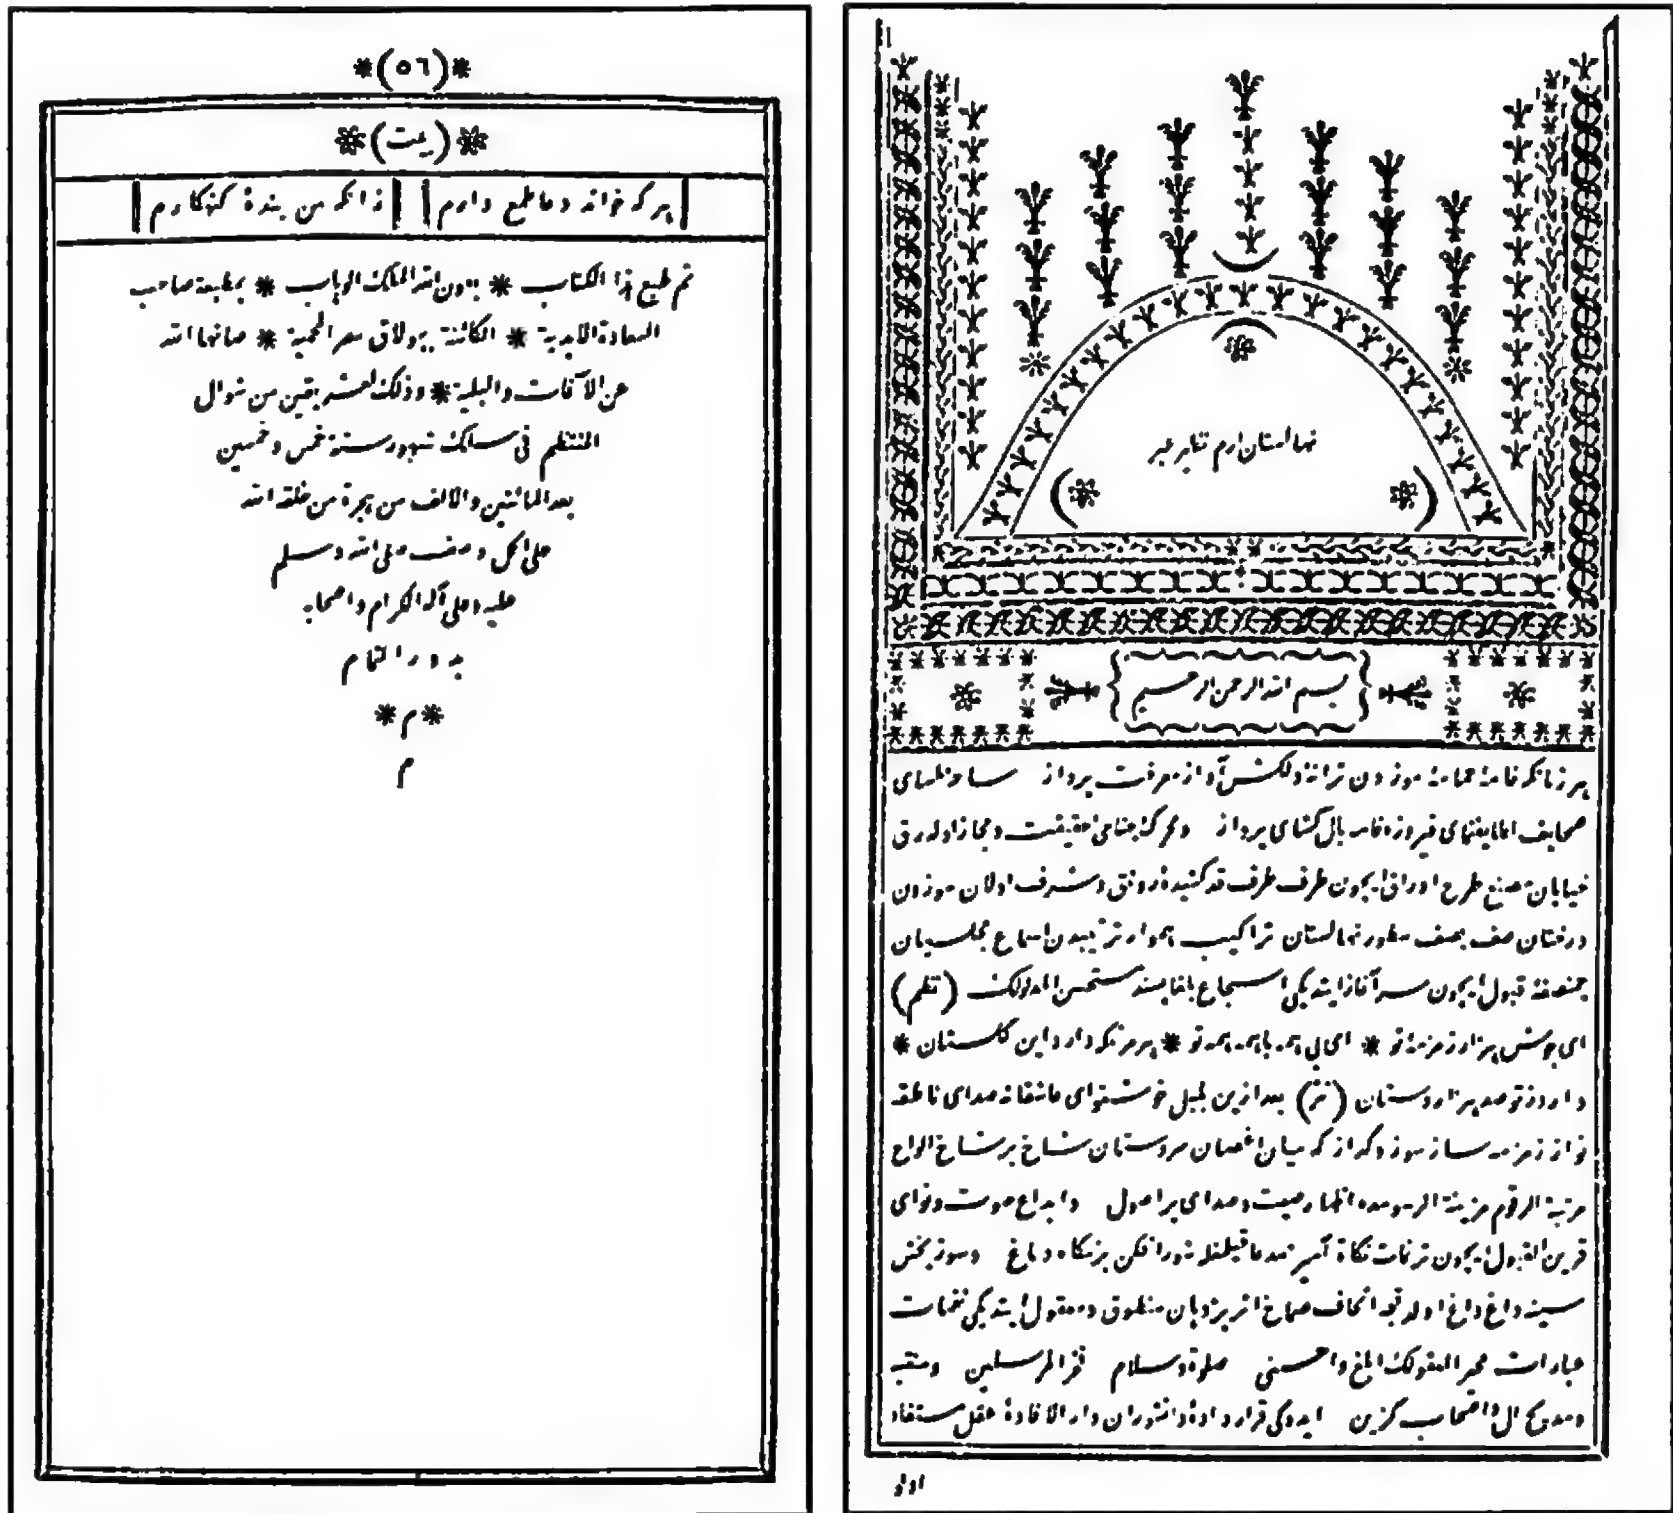 *(٥٦)*
*(بيت)*
هر كه خواند دعا طمع دارم | زانكه من بندۀ كنهكارم
تم طبع هذا الكتاب * بعون الله الملك الوهاب * بمطبعة صاحب
السعادة الابدية * الكائنة ببولاق مصر المحمية * صانها الله
عن الآفات والبلية * وذلك لعشر بقين من شوال
المنتظم فى سلك شهور سنة خمس وخمسين
بعد المائتين والالف من هجرة من خلقه الله
على اكمل وصف صلى الله وسلم
عليه وعلى آله الكرام واصحابه
بدور التمام
*م*
م
نهالستان ارم نظير
بسم الله الرحمن الرحيم
هر زمانكه خامۀ موزون ترانۀ دلكش آواز معرفت پرداز ساحتهاى
صحايف فيروزه فامه بال كشاى پرواز حقيقت ومجاز اوله رق
خيابان صنع طرح اوراق ايچون طرف طرف قد كشيدۀ رونق وشرف اولان موزون
درختان صف بصف سطور نهالستان تراكيب اسماع مجلسيان
قبول ايچون سرآغاز ايتديكى اسجاع بلغاپسند مستحسن المدلولك (نظم)
اى جوش هزار زمزمۀ تو * اى بى همه باهمه همه تو * هر مرغ كه دارد اين كلستان *
دارد ز تو صد هزار دستان (نثر) بعد ازين بلبل خوشنواى عاشقانه صداى ناطقه
نواز زمزمه ساز سوز وكداز كه ميان اغصان سروستان شاخ بر شاخ الواح
مرتبة الرقوم مزينة الرسومده اظهار صيت وصداى پر اصول وابداع صوت ونواى
قرين القبول ايچون ترنمات آميز شور افكن بزمكاه دماغ وسوز بخش
سينۀ داغ داغ اولدقجه اتحاف صماخ منطوق ومعقول ايتديكى نغمات
عبارات ابلغ واحسنى صلوة وسلام فخر المرسلين ومنقبه
ومديح آل واصحاب كزين ايدوكى قرار دادۀ دانشوران دار الافادۀ عقل مستفاد